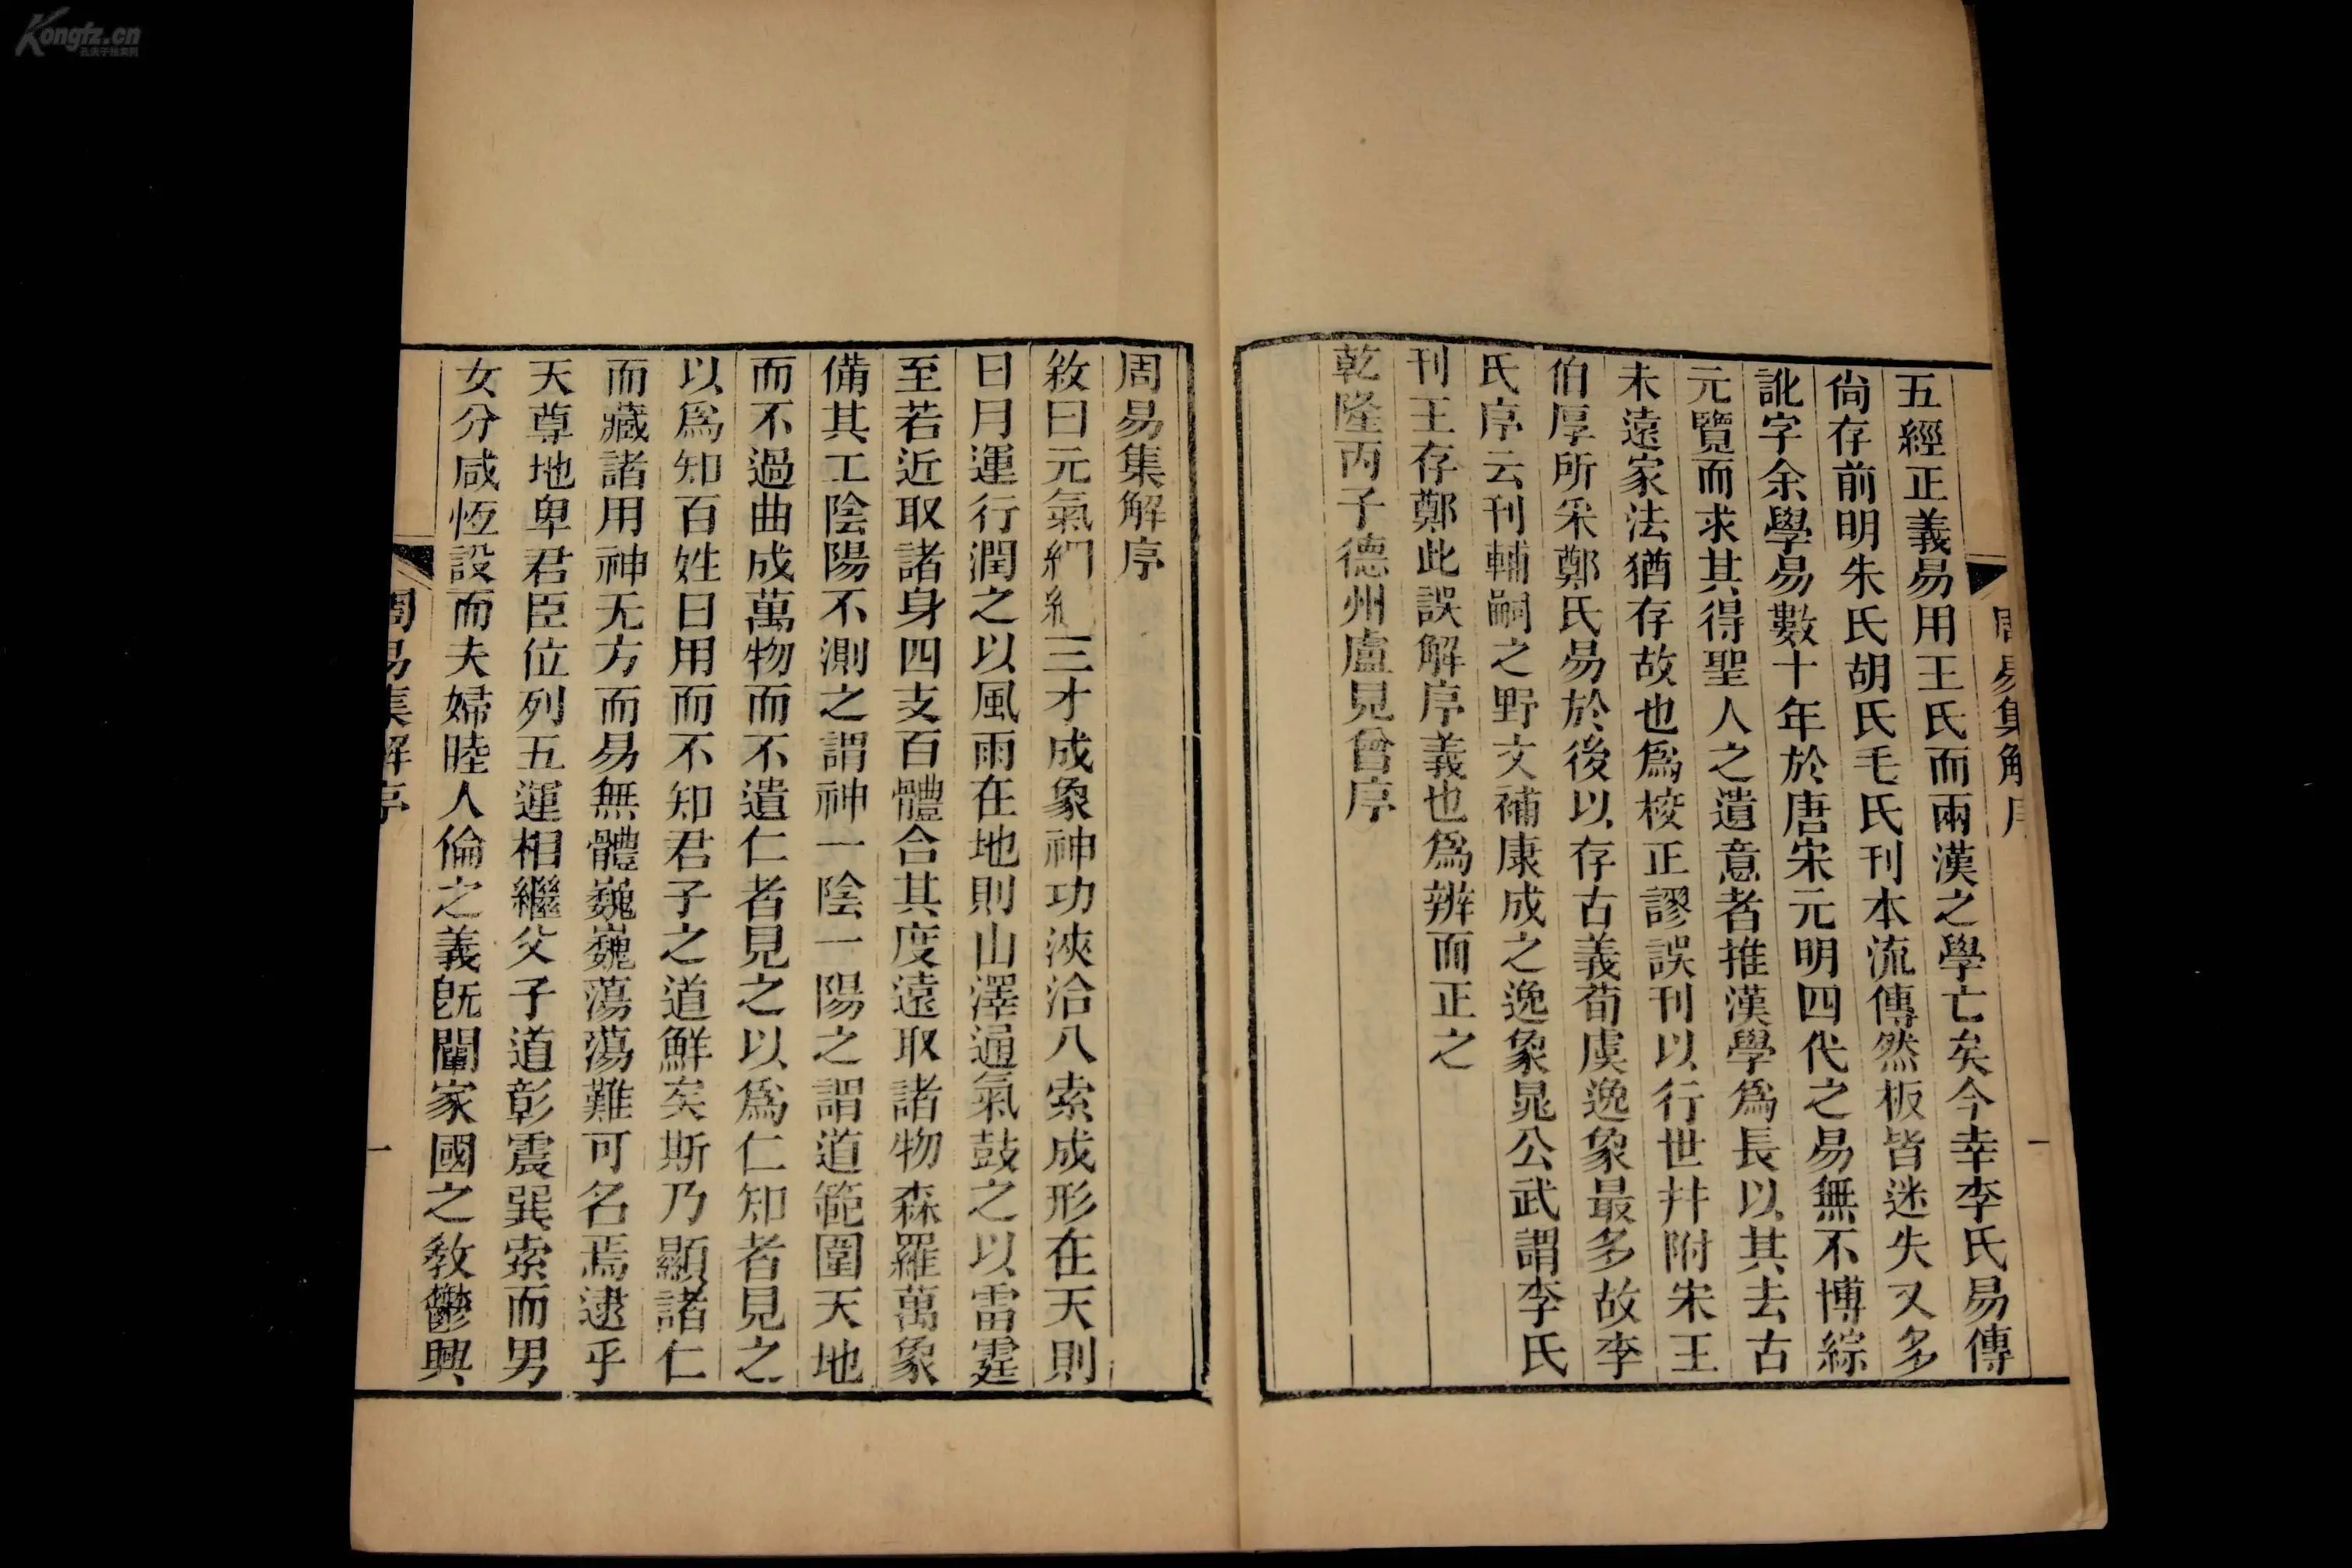 Kongfz.cn
周易集解序
一
五經正義易用王氏而兩漢之學亡矣今幸李氏易傳
尙存前明朱氏胡氏毛氏刊本流傳然板皆迷失又多
訛字余學易數十年於唐宋元明四代之易無不博綜
元覽而求其得聖人之遺意者推漢學爲長以其去古
未遠家法猶存故也爲校正謬誤刊以行世幷附宋王
伯厚所采鄭氏易於後以存古義荀虞逸象最多故李
氏序云刊輔嗣之野文補康成之逸象晁公武謂李氏
刊王存鄭此誤解序義也爲辨而正之
乾隆丙子德州盧見曾序
周易集解序
敘曰元氣絪縕三才成象神功浹洽八索成形在天則
日月運行潤之以風雨在地則山澤通氣鼓之以雷霆
至若近取諸身四支百體合其度遠取諸物森羅萬象
備其工陰陽不測之謂神一陰一陽之謂道範圍天地
而不過曲成萬物而不遺仁者見之以爲仁知者見之
以爲知百姓日用而不知君子之道鮮矣斯乃顯諸仁
而藏諸用神无方而易無體巍巍蕩蕩難可名焉逮乎
天尊地卑君臣位列五運相繼父子道彰震巽索而男
女分咸恆設而夫婦睦人倫之義旣闡家國之敎鬱興
周易集解序
一